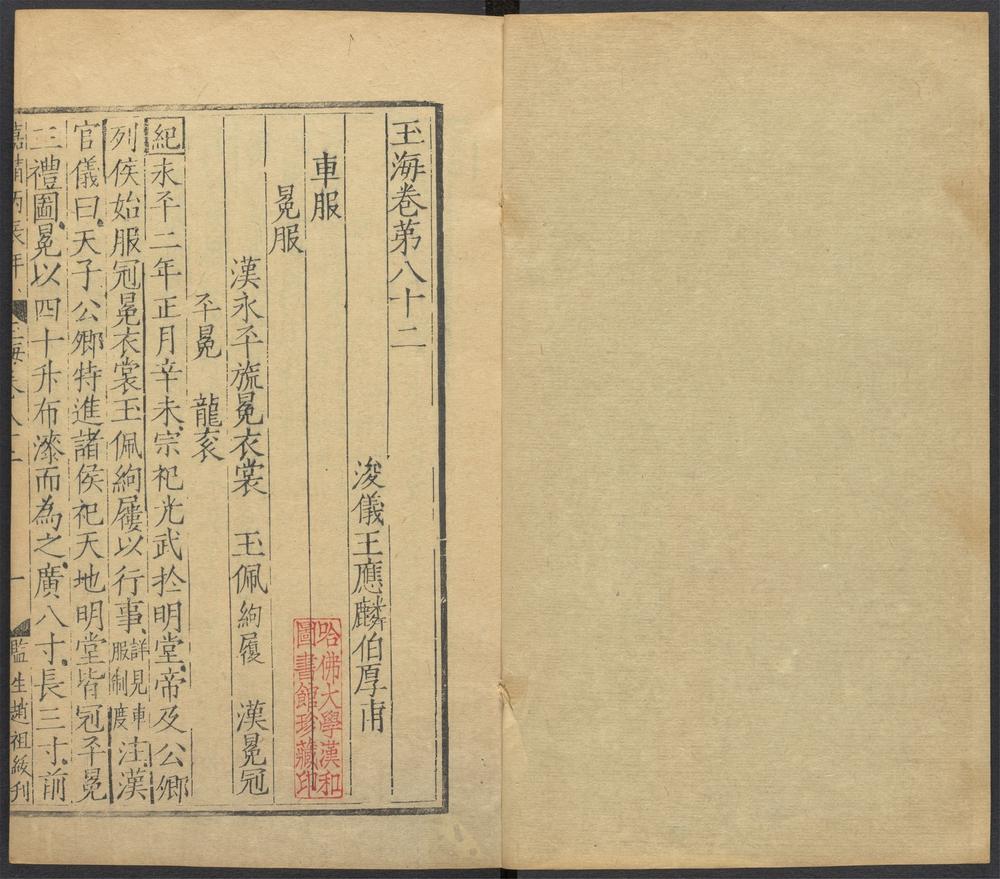 玉海卷第八十二
浚儀王應麟伯厚甫
車服
冕服
漢永平旒冕衣裳 玉佩絢履 漢冕冠
平冕 龍衮
紀永平二年正月辛未宗祀光武於明堂帝及公卿
列侯始服冠冕衣裳玉佩絢屨以行事詳見車服制度注漢
官儀曰天子公卿特進諸侯祀天地明堂皆冠平冕
三禮圖冕以四十升布漆而為之廣八寸長三寸前
嘉靖丙辰年 玉海卷八十二 一 監生趙祖綬刊
哈佛大學漢和圖書館珍藏印